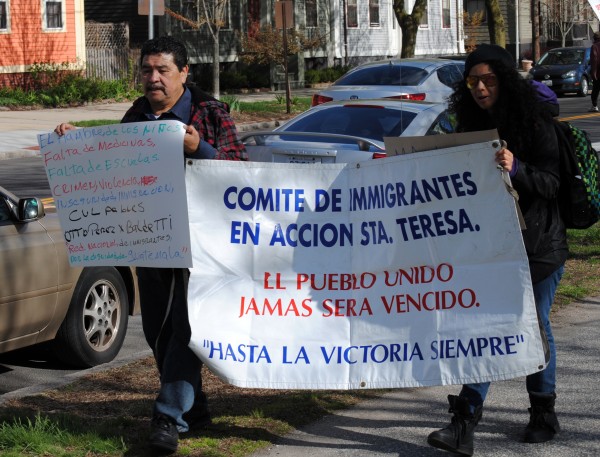 EL Hambre de los NIÑOS
FALTA DE Medicinas
FALTA DE Escuelas
CRIMEN y Violencia
CULPABLES
OTTO Pérez x BALDETTI
Red Nacional de inmigrantes
Guatemala
COMITE DE IMMIGRANTES
EN ACCION STA. TERESA.
EL PUEBLO UNIDO
JAMAS SERA VENCIDO.
"HASTA LA VICTORIA SIEMPRE"